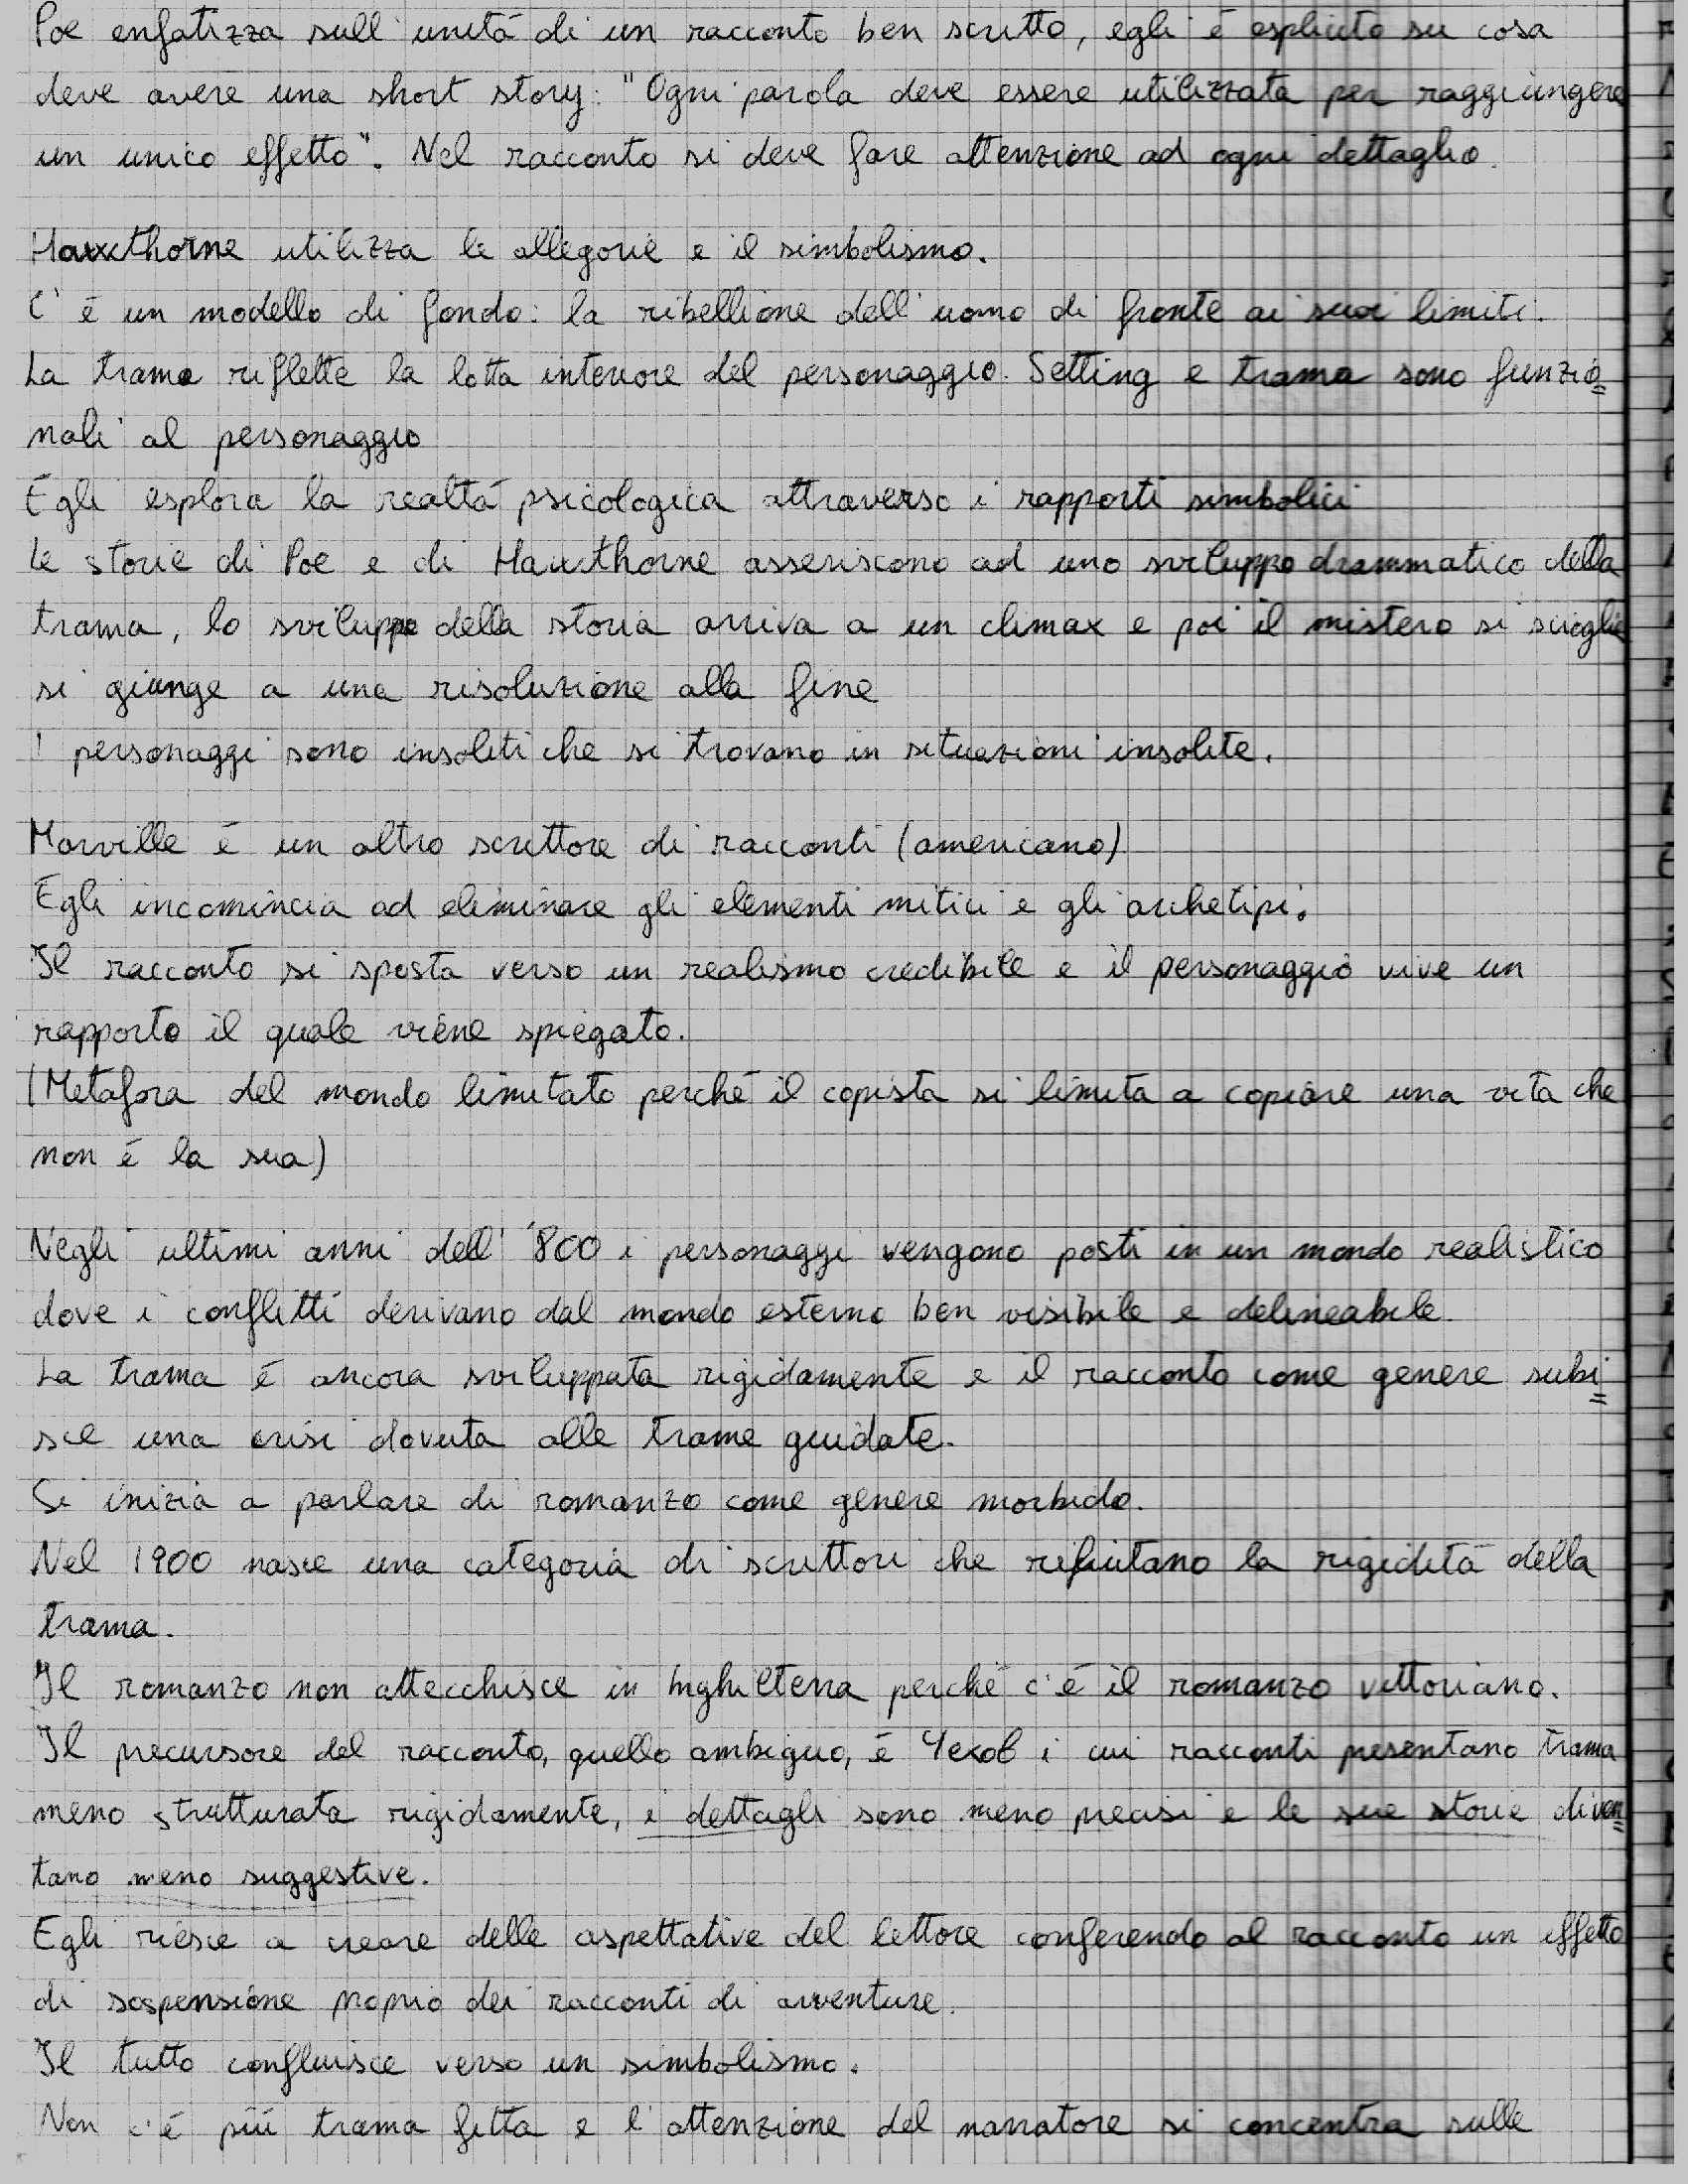 Poe enfatizza sull'unitá di un racconto ben scritto, egli é esplicito su cosa
deve avere una short story: "Ogni parola deve essere utilizzata per raggiungere
un unico effetto". Nel racconto si deve fare attenzione ad ogni dettaglio.
Hawthorne utilizza le allegorie e il simbolismo.
C'é un modello di fondo: la ribellione dell'uomo di fronte ai suoi limiti.
La trama riflette la lotta interiore del personaggio. Setting e trama sono funzio=
nali al personaggio
Egli esplora la realtá psicologica attraverso i rapporti simbolici
Le storie di Poe e di Hawthorne asseriscono ad uno sviluppo drammatico della
trama, lo sviluppo della storia arriva a un climax e poi il mistero si scioglie
si giunge a una risoluzione alla fine
I personaggi sono insoliti che si trovano in situazioni insolite.
Marville é un altro scrittore di racconti (americano)
Egli incomincia ad eliminare gli elementi mitici e gli archetipi.
Il racconto si sposta verso un realismo credibile e il personaggio vive un
rapporto il quale viene spiegato.
(Metafora del mondo limitato perché il copista si limita a copiare una vita che
non é la sua)
Negli ultimi anni dell'800 i personaggi vengono posti in un mondo realistico
dove i conflitti derivano dal mondo esterno ben visibile e delineabile.
La trama é ancora sviluppata rigidamente e il racconto come genere subi=
sce una crisi dovuta alle trame guidate.
Si inizia a parlare di romanzo come genere morbido.
Nel 1900 nasce una categoria di scrittori che rifiutano la rigiditá della
trama.
Il romanzo non attecchisce in Inghilterra perché c'é il romanzo vittoriano.
Il precursore del racconto, quello ambiguo, é Чехов i cui racconti presentano trama
meno strutturata rigidamente, i dettagli sono meno precisi e le sue storie diven=
tano meno suggestive.
Egli riesce a creare delle aspettative del lettore conferendo al racconto un effetto
di sospensione proprio dei racconti di avventure.
Il tutto confluisce verso un simbolismo.
Non c'é piú trama fitta e l'attenzione del narratore si concentra sulle